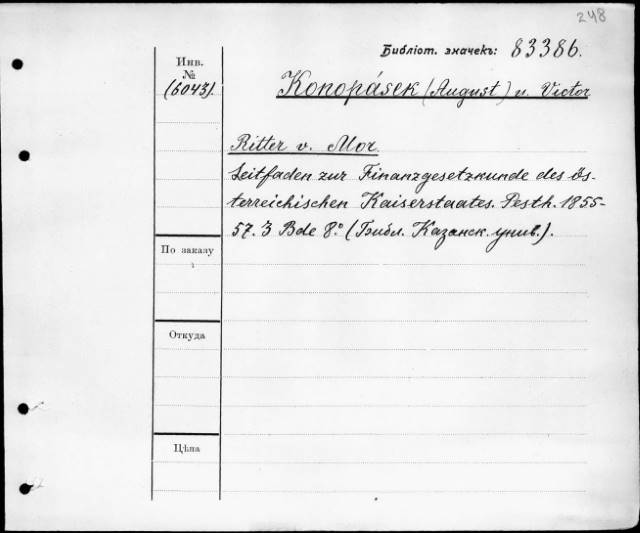 248
Библіот. значекъ: 83386.
Инв.
№
(6043).
Konopásek (August) u. Victor
Ritter v. Mor.
Leitfaden zur Finanzgesetzkunde des ös-
terreichischen Kaiserstaates. Pesth. 1855-
57. 3 Bde 8.º (Библ. Казанск. унив.).
По заказу
Откуда
Цѣна